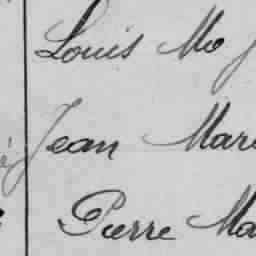 Louis Mo
Jean Mar
Pierre Ma